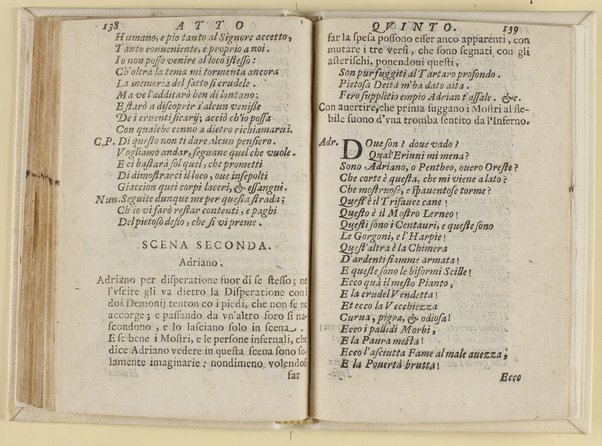 138 ATTO
Humano, e pio tanto al Signore accetto,
Tanto conueniente, e proprio a noi.
Io non posso venire al loco istesso:
Ch'oltra la tema mi tormenta ancora
La memoria del fatto sì crudele.
Ma ve l'additarò ben di lontano;
E starò a discoprir s'alcun venisse
De i cruenti sicarij; acciò ch'io possa
Con qualche cenno a dietro richiamarui.
C.P. Di questo non ti dare alcun pensiero.
Vogliamo andar, seguane quel che vuole.
E ci bastarà sol quel, che prometti
Di dimostrarci il loco, oue insepolti
Giaccion quei corpi laceri, & essangui.
Nun. Seguite dunque me per questa strada;
Ch'io vi farò restar contenti, e paghi
Del pietoso desio, che sì vi preme.
SCENA SECONDA.
Adriano.
Adriano per disperatione fuor di se stesso; ne
l'vscire gli va dietro la Disperatione con i
doi Demonij tenton co i piedi, che non se n'
accorge; e passando da vn'altro foro si na-
scondono, e lo lasciano solo in scena.
E se bene i Mostri, e le persone infernali, che
dice Adriano vedere in questa scena sono so-
lamente imaginarie; nondimeno volendosi
far
QVINTO. 139
far la spesa possono esser anco apparenti, con
mutare i tre versi, che sono segnati con gli
asterischi, ponendoui questi,
Son pur fuggiti al Tartaro profondo.
Pietosa Deità m'ha dato aita.
Fero supplitio empio Adrian t'assale. &c.
Con auertire, che prima fuggano i Mostri al fle-
bile suono d'vna tromba sentito da l'Inferno.
Adr. Doue son? doue vado?
Qual Erinni mi mena?
Sono Adriano, o Pentheo, ouero Oreste?
Che corte è questa, che mi viene a lato?
Che mostruose, e spauentose torme?
Quest'è il Trifauce cane!
Questo è il Mostro Lerneo!
Questi sono i Centauri, e queste sono
Le Gorgoni, e l'Harpie!
Quest'altra è la Chimera
D'ardenti fiamme armata!
E queste sono le biformi Scille!
Ecco quà il mesto Pianto,
E la crudel Vendetta!
Et ecco la Vecchiezza
Curua, pigra, & odiosa!
Ecco i pallidi Morbi,
E la Paura mesta!
Ecco l'asciutta Fame al male auezza;
E la Pouertà brutta!
Ecco